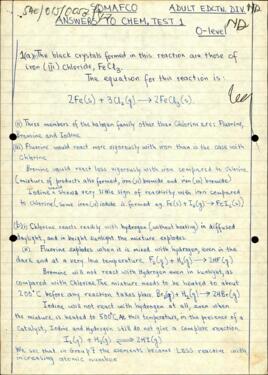 SOMAFCO ADULT EDCTN. DIV.
ANSWERS TO CHEM. TEST 1
O-level
1(a)(i) The black crystals formed in this reaction are those of
iron (iii) Chloride, FeCl3.
The equation for this reaction is:
2Fe(s) + 3Cl2(g) → 2FeCl3(s).
(ii) Three members of the halogen family other than Chlorine are: Fluorine,
Bromine and Iodine.
(iii) Fluorine would react more vigorously with iron than is the case with
Chlorine
Bromine would react less vigorously with iron compared to Chlorine
(mixture of products also formed, iron (ii) bromide and iron (iii) bromide)
Iodine shows very little sign of reactivity with iron compared
to Chlorine (some iron (ii) iodide is formed eg. Fe(s) + I2(g) → FeI2(s))
(b)(i) Chlorine reacts readily with hydrogen (without heating) in diffused
daylight, and in bright sunlight the mixture explodes.
(ii) Fluorine explodes when it is mixed with hydrogen, even in the
dark and at a very low temperature. F2(g) + H2(g) → 2HF(g)
Bromine will not react with hydrogen even in sunlight, as
compared with Chlorine. The mixture needs to be heated to about
200°C before any reaction takes place. Br2(g) + H2(g) → 2HBr(g)
Iodine will not react with hydrogen at all, even when
the mixture is heated to 500°C. At this temperature, in the presence of a
Catalyst, Iodine and hydrogen still do not give a complete reaction.
I2(g) + H2(g) ⇌ 2HI(g)
We see that in group 7 the elements become LESS reactive with
increasing atomic number